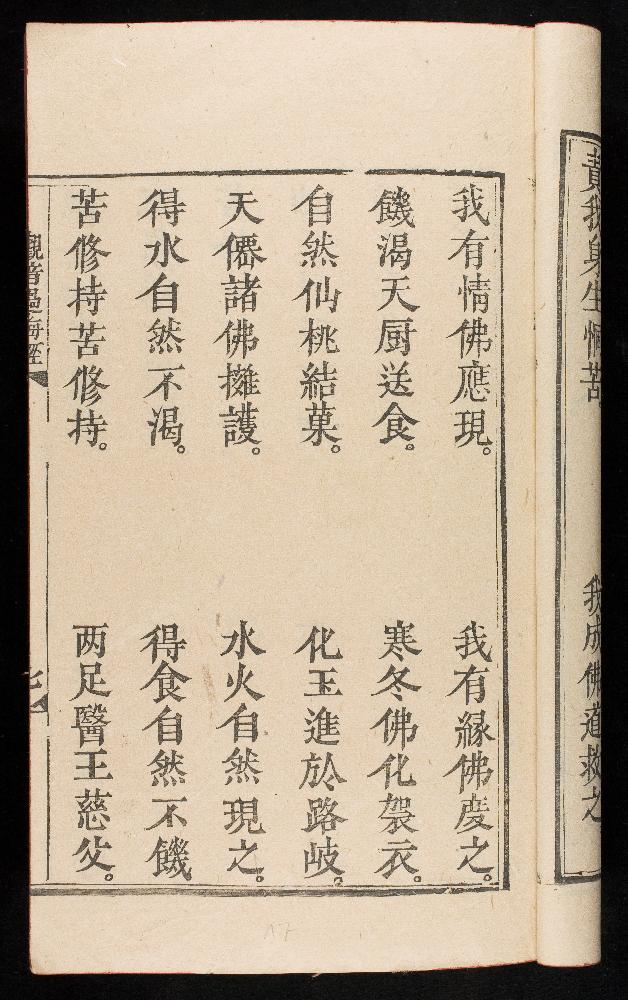 責我身生惱苦 我成佛道救之
我有情佛應現。 我有緣佛度之。
饑渴天厨送食。 寒冬佛化袈衣。
自然仙桃結菓。 化玉進於路岐。
天僊諸佛擁護。 水火自然現之。
得水自然不渴。 得食自然不饑
苦修持苦修持。 两足醫王慈父。
觀音過海經
七